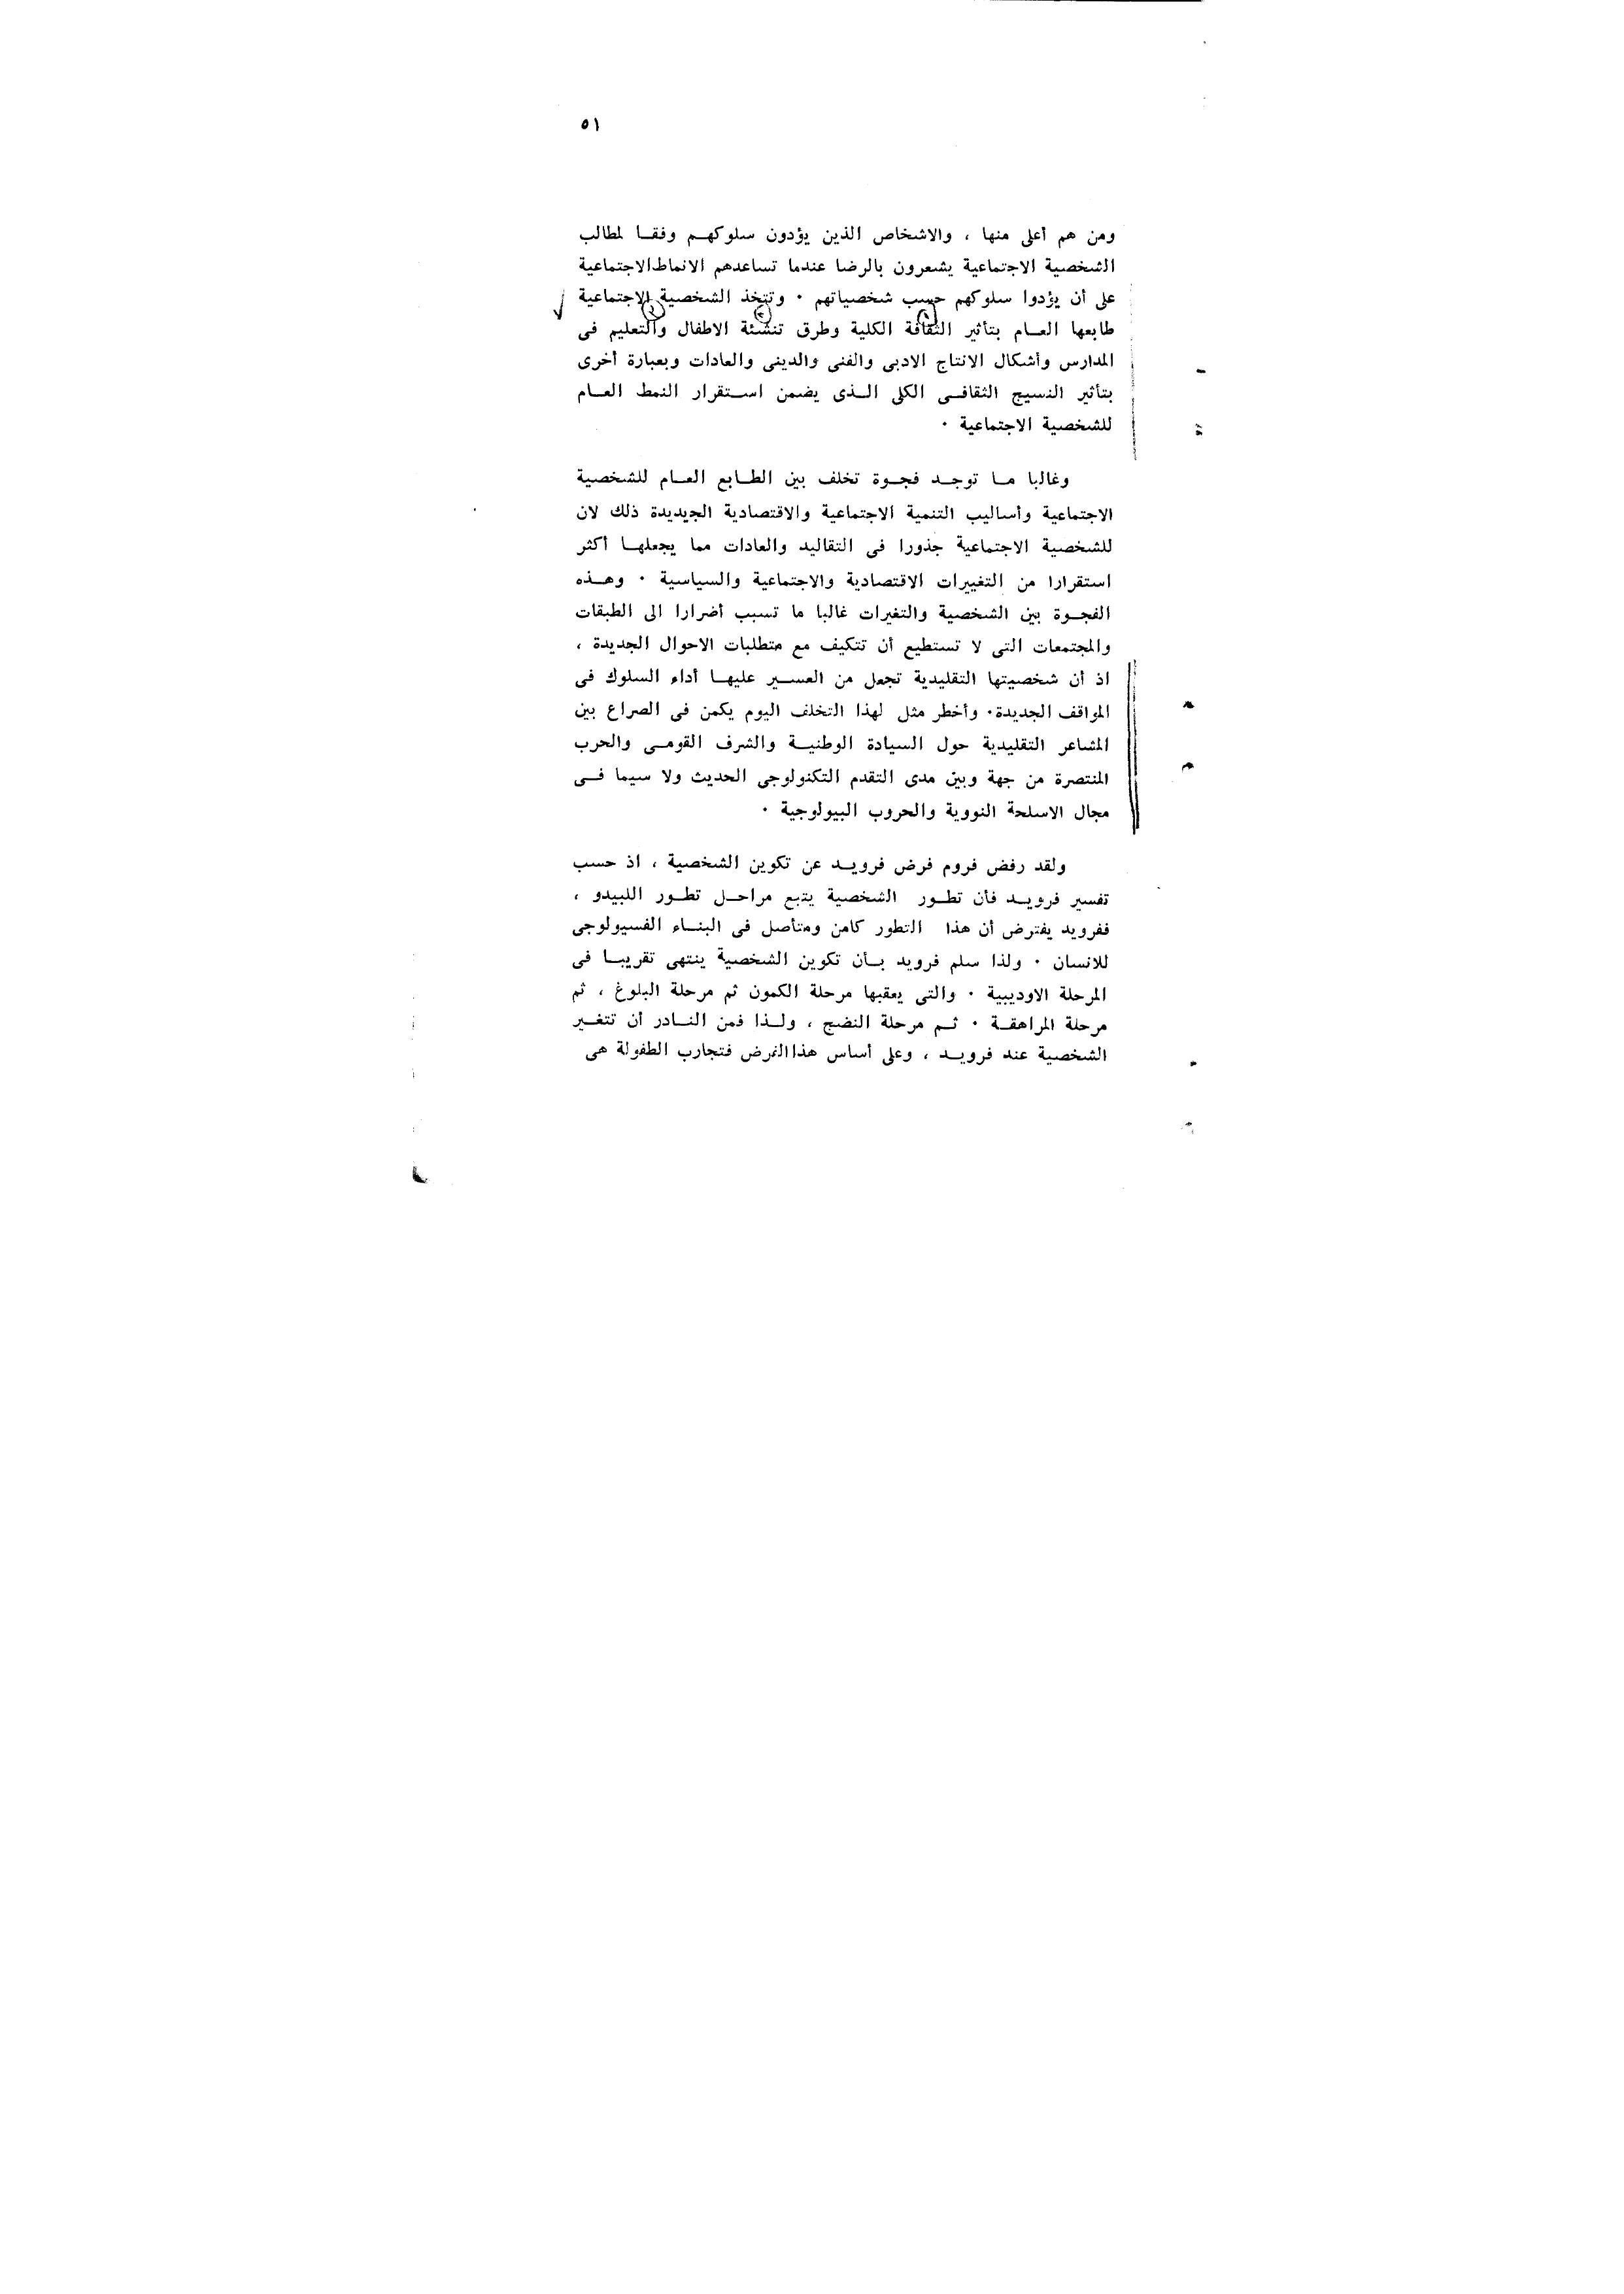 ٥١
ومن هم أعلى منها ، والاشخاص الذين يؤدون سلوكهم وفقا لمطالب
الشخصية الاجتماعية يشعرون بالرضا عندما تساعدهم الانماط الاجتماعية
على أن يؤدوا سلوكهم حسب شخصياتهم ٠ وتتخذ الشخصية الاجتماعية
طابعها العام بتأثير الثقافة الكلية وطرق تنشئة الاطفال والتعليم فى
المدارس وأشكال الانتاج الادبى والفنى والدينى والعادات وبعبارة أخرى
بتأثير النسيج الثقافى الكلى الذى يضمن استقرار النمط العام
للشخصية الاجتماعية ٠
وغالبا ما توجد فجوة تخلف بين الطابع العام للشخصية
الاجتماعية وأساليب التنمية الاجتماعية والاقتصادية الجيديدة ذلك لان
للشخصية الاجتماعية جذورا فى التقاليد والعادات مما يجعلها أكثر
استقرارا من التغييرات الاقتصادية والاجتماعية والسياسية ٠ وهذه
الفجوة بين الشخصية والتغيرات غالبا ما تسبب أضرارا الى الطبقات
والمجتمعات التى لا تستطيع أن تتكيف مع متطلبات الاحوال الجديدة ،
اذ أن شخصيتها التقليدية تجعل من العسير عليها أداء السلوك فى
المواقف الجديدة٠ وأخطر مثل لهذا التخلف اليوم يكمن فى الصراع بين
المشاعر التقليدية حول السيادة الوطنية والشرف القومى والحرب
المنتصرة من جهة وبين مدى التقدم التكنولوجى الحديث ولا سيما فى
مجال الاسلحة النووية والحروب البيولوجية ٠
ولقد رفض فروم فرض فرويد عن تكوين الشخصية ، اذ حسب
تفسير فرويد فأن تطور الشخصية يتبع مراحل تطور اللبيدو ،
ففرويد يفترض أن هذا التطور كامن ومتأصل فى البناء الفسيولوجى
للانسان ٠ ولذا سلم فرويد بأن تكوين الشخصية ينتهى تقريبا فى
المرحلة الاوديبية ٠ والتى يعقبها مرحلة الكمون ثم مرحلة البلوغ ، ثم
مرحلة المراهقة ٠ ثم مرحلة النضج ، ولذا فمن النادر أن تتغير
الشخصية عند فرويد ، وعلى أساس هذا الفرض فتجارب الطفولة هى